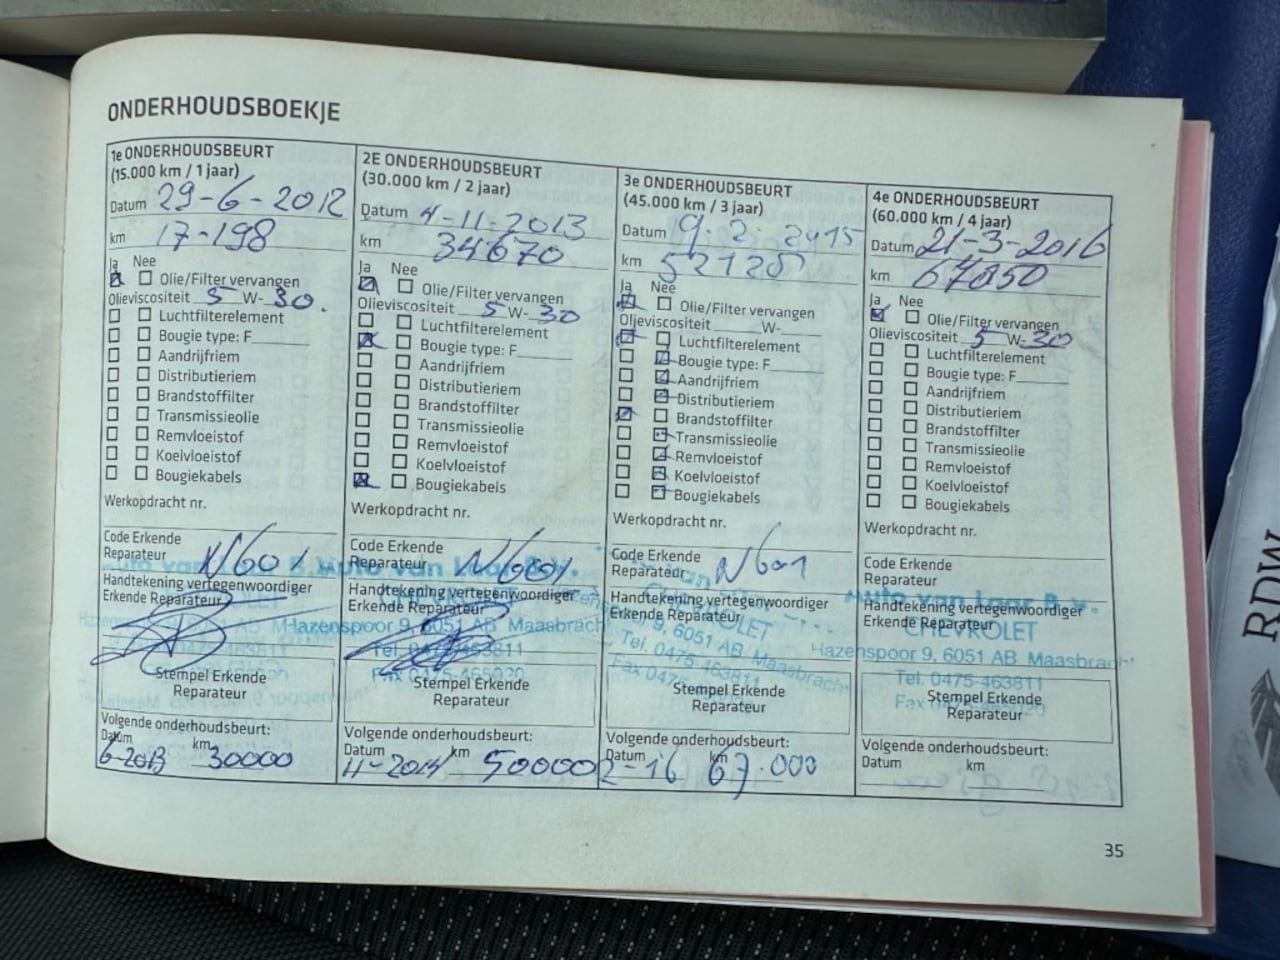 ONDERHOUDSBOEKJE
1e ONDERHOUDSBEURT
(15.000 km / 1 jaar)
Datum 29-6-2012
km 17-198
Ja Nee
Olie/Filter vervangen
Olieviscositeit 5 W- 30.
Luchtfilterelement
Bougie type: F
Aandrijfriem
Distributieriem
Brandstoffilter
Transmissieolie
Remvloeistof
Koelvloeistof
Bougiekabels
Werkopdracht nr.
Code Erkende
Reparateur N601
Auto van
Handtekening vertegenwoordiger
Erkende Reparateur
Stempel Erkende
Reparateur
Volgende onderhoudsbeurt:
Datum km
6-2013 30000
2E ONDERHOUDSBEURT
(30.000 km / 2 jaar)
Datum 4-11-2013
km 34670
Ja Nee
Olie/Filter vervangen
Olieviscositeit 5 W- 30
Luchtfilterelement
Bougie type: F
Aandrijfriem
Distributieriem
Brandstoffilter
Transmissieolie
Remvloeistof
Koelvloeistof
Bougiekabels
Werkopdracht nr.
Code Erkende
Reparateur N601
Auto van Laar B.V.
Handtekening vertegenwoordiger
Erkende Reparateur
Hazenspoor 9, 6051 AB Maasbracht
Tel. 0475-463811
Fax 0475-465020
Stempel Erkende
Reparateur
Volgende onderhoudsbeurt:
Datum km
11-2014 50000
3e ONDERHOUDSBEURT
(45.000 km / 3 jaar)
Datum 9-2-2015
km 52125
Ja Nee
Olie/Filter vervangen
Olieviscositeit W-
Luchtfilterelement
Bougie type: F
Aandrijfriem
Distributieriem
Brandstoffilter
Transmissieolie
Remvloeistof
Koelvloeistof
Bougiekabels
Werkopdracht nr.
Code Erkende
Reparateur N601
CHEVROLET
Handtekening vertegenwoordiger
Erkende Reparateur
9, 6051 AB Maasbracht
Tel. 0475-463811
Fax 0475
Stempel Erkende
Reparateur
Volgende onderhoudsbeurt:
Datum km
2-16 67.000
4e ONDERHOUDSBEURT
(60.000 km / 4 jaar)
Datum 21-3-2016
km 67850
Ja Nee
Olie/Filter vervangen
Olieviscositeit 5 W- 30
Luchtfilterelement
Bougie type: F
Aandrijfriem
Distributieriem
Brandstoffilter
Transmissieolie
Remvloeistof
Koelvloeistof
Bougiekabels
Werkopdracht nr.
Code Erkende
Reparateur
Auto van Laar B.V.
Handtekening vertegenwoordiger
Erkende Reparateur
CHEVROLET
Hazenspoor 9, 6051 AB Maasbracht
Tel. 0475-463811
Fax 0475-465020
Stempel Erkende
Reparateur
Volgende onderhoudsbeurt:
Datum km
35
RDW